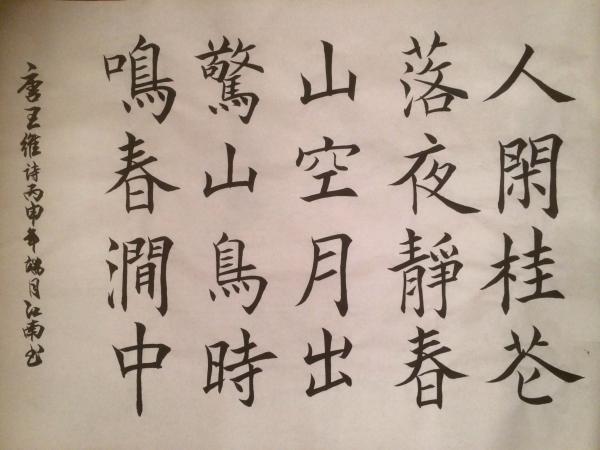 人閑桂花
落夜靜春
山空月出
驚山鳥時
鳴春澗中
唐王維诗丙申年端月江南书